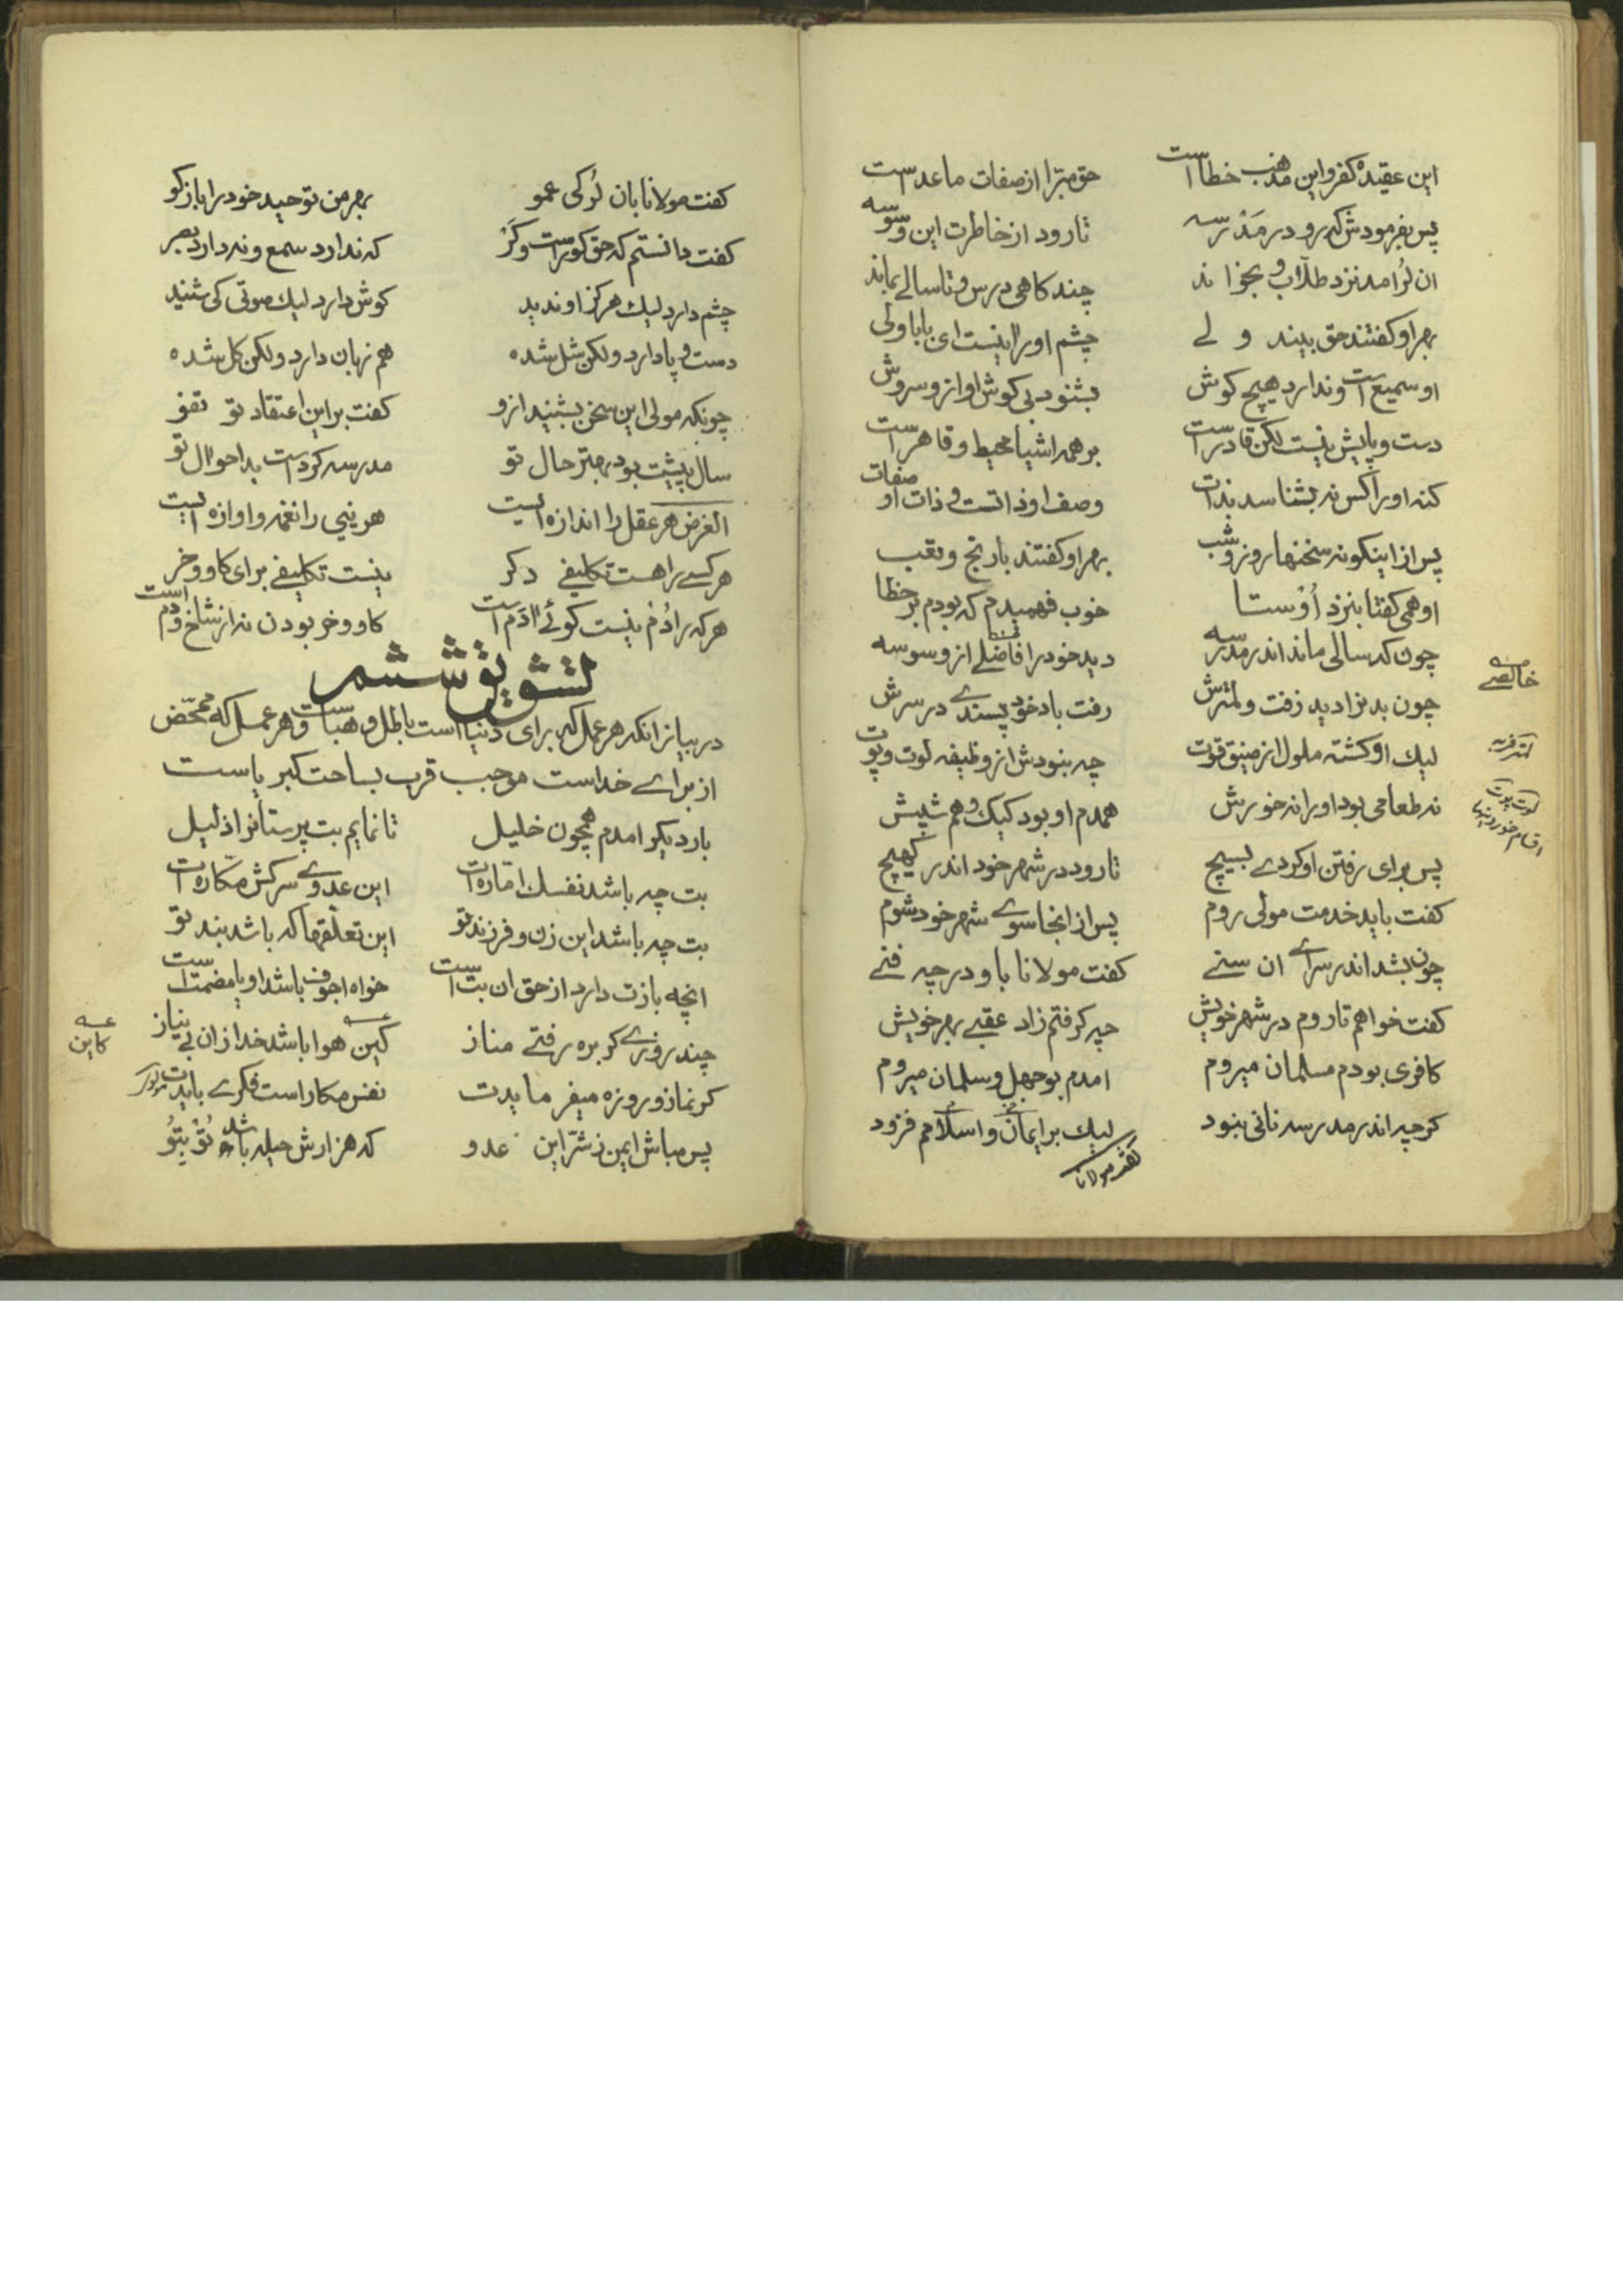 این عقیده کفر و این مذهب خطا است حق مبرا از صفات ما عداست
پس بفرمودش که رو در مدرسه تا رود از خاطرت این وسوسه
ان لر امد نزد طلاب و بخواند چند کاهی درس و تا سالے بماند
بهر او کفتند حق بیند و لے چشم او را نیست ای بابا ولی
او سمیع است و ندارد هیچ کوش بشنود بی کوش اواز و سروش
دست و پایش نیست لکن قادرست بر همه اشیا محیط و قاهرست
کنه او را کس نه بشناسد بذات وصف او ذاتست و ذات او صفات
پس از اینکونه سخنها روز و شب بهر او کفتند با رنج و تعب
او همی کفتا بنزد اوستا خوب فهمیدم که بودم بر خطا
چون که سالی ماند اندر مدرسه دید خود را فاضلے از وسوسه
خالصے
چون بدنرا دید زفت و لمترش رفت باد خود پسندے در سرش
لمتر فربه
لیك او کشته ملول از ضیق قوت چه نبودش از وظیفه لوت و پوت
لوت پوت اقسام خوردنیها
نه طعامی بود او را نه خورش همدم او بود کیك و هم شپش
پس برای رفتن او کردے بسیچ تا رود در شهر خود اندر کهیچ
کفت باید خدمت مولی روم پس از انجا سوے شهر خود شوم
چون بشد اندر سراے ان سنے کفت مولانا باو در چه فنے
کفت خواهم تا روم در شهر خویش چه کرفتم زاد عقبے بهر خویش
کافری بودم مسلمان میروم امدم بوجهل و سلمان میروم
کرچه اندر مدرسه نانی نبود لیك بر ایمان و اسلامم فزود
کفت مولانا
کفت مولانا بان لر کی عمو بهر من توحید خود را باز کو
کفت دانستم که حق کور است و کر که ندارد سمع و نه دارد بصر
چشم دارد لیك هرکز او ندید کوش دارد لیك صوتی کی شنید
دست و پا دارد ولکن شل شده هم زبان دارد ولکن کل شده
چونکه مولی این سخن بشنید ازو کفت بر این اعتقاد تو تفو
سال پیشت بود بهتر حال تو مدرسه کردست بد احوال تو
الغرض هر عقل را اندازه ایست هر نیی را نغمه و اوازه ایست
هر کسے را هست تکلیفے دکر نیست تکلیفے برای کاو و خر
هر که را دم نیست کوئی ادم است کاو و خر بودن نه از شاخ و دم است
تشویق ششم
در بیان انکه هر عمل که برای دنیا است باطل و هباست و هر عمل که محض
از براے خداست موجب قرب بساحت کبریاست
بار دیکر امدم همچون خلیل تا نمایم بت پرستانرا ذلیل
بت چه باشد نفسك امّاره ات این عدوے سرکش مکّاره ات
بت چه باشد این زن و فرزند تو این تعلّقها که باشد بند تو
انچه بازت دارد از حق ان بت است خواه اجوف باشد او یا مصمت است
چند روزے کر بره رفتے مناز کین هوا باشد خدا زان بی نیاز
کاین
کر نماز و روزه میفرمایدت نفس مکار است فکرے بایدت
پس مباش ایمن ز شرّ این عدو که هزارش حیله باشد تو بتو